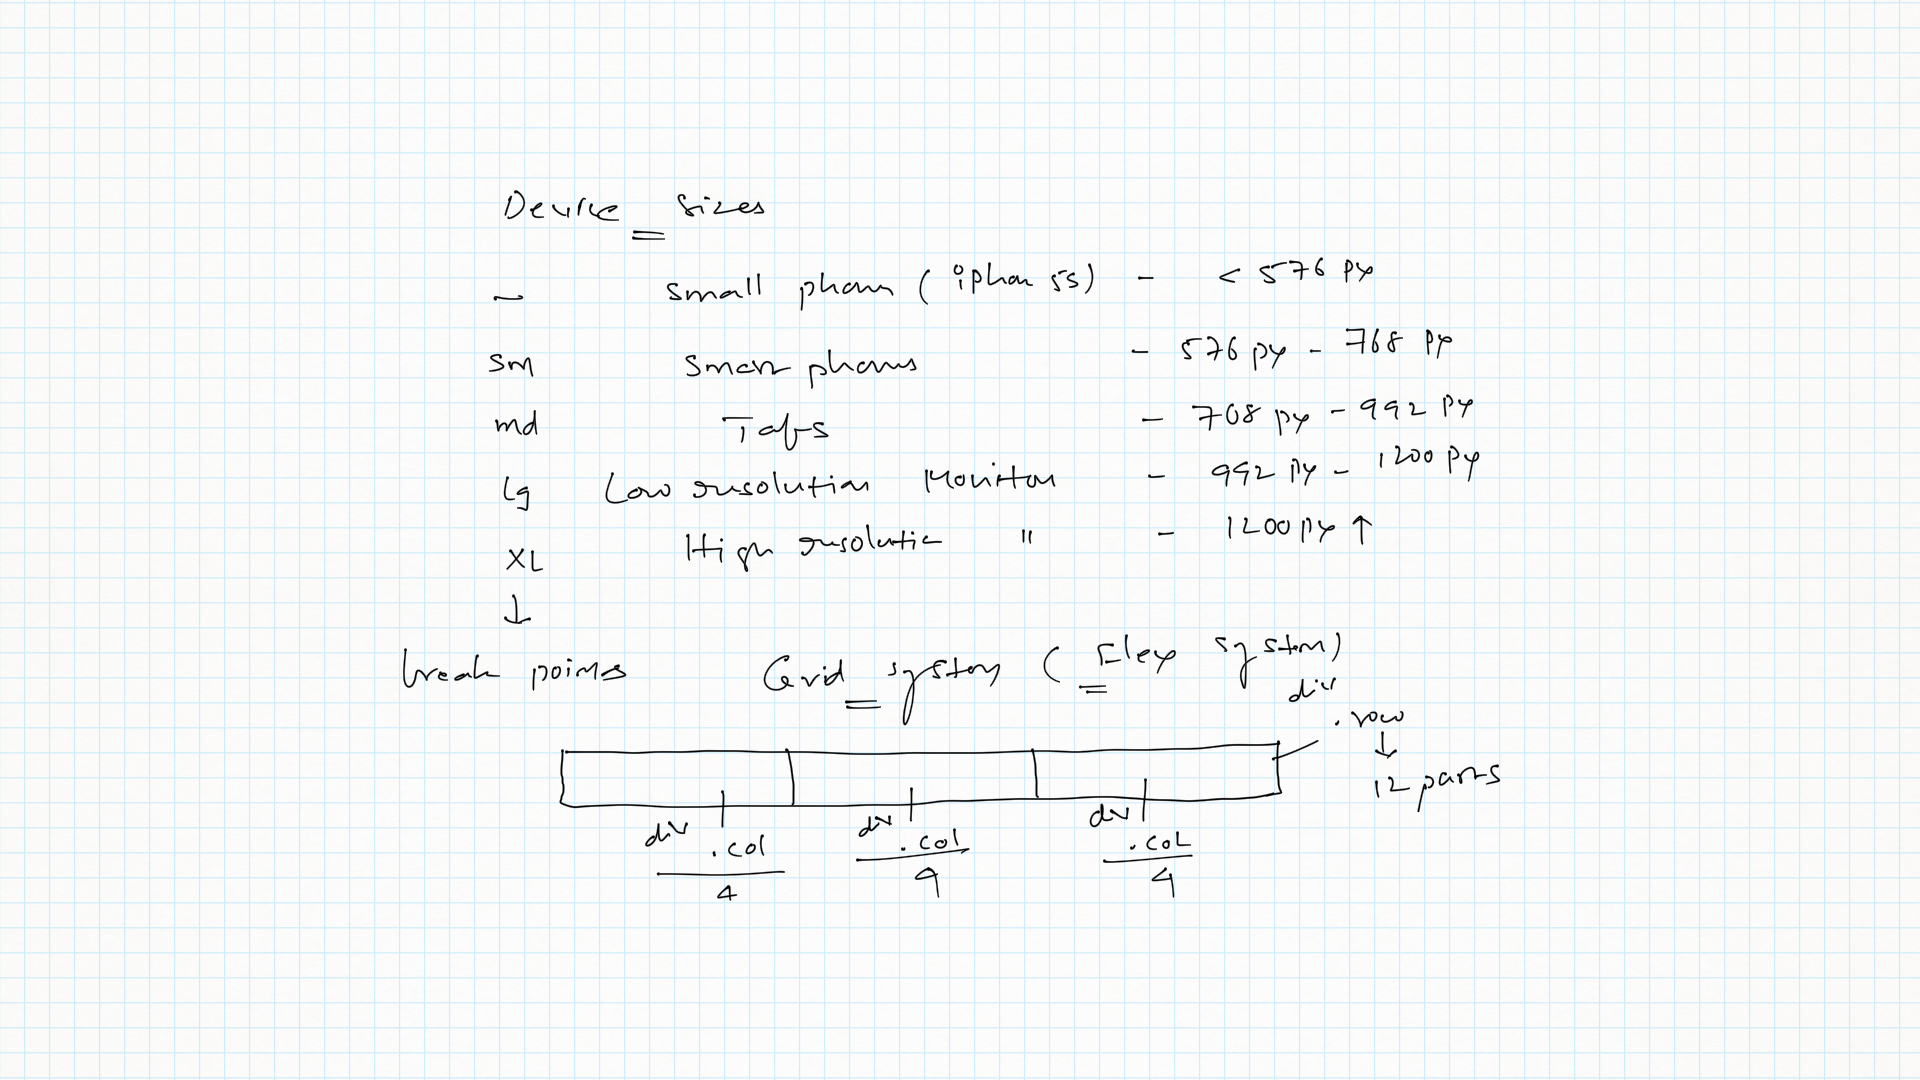 Device sizes
– small phone (iphone 5s) - < 576 px
sm smart phones - 576 px - 768 px
md Tabs - 708 px - 992 px
lg Low resolution Monitor - 992 px - 1200 px
XL High resolution " - 1200 px ↑
↓
break points Grid system (Flex system)
div
.row
↓
12 parts
div .col div .col div .col
4 4 4